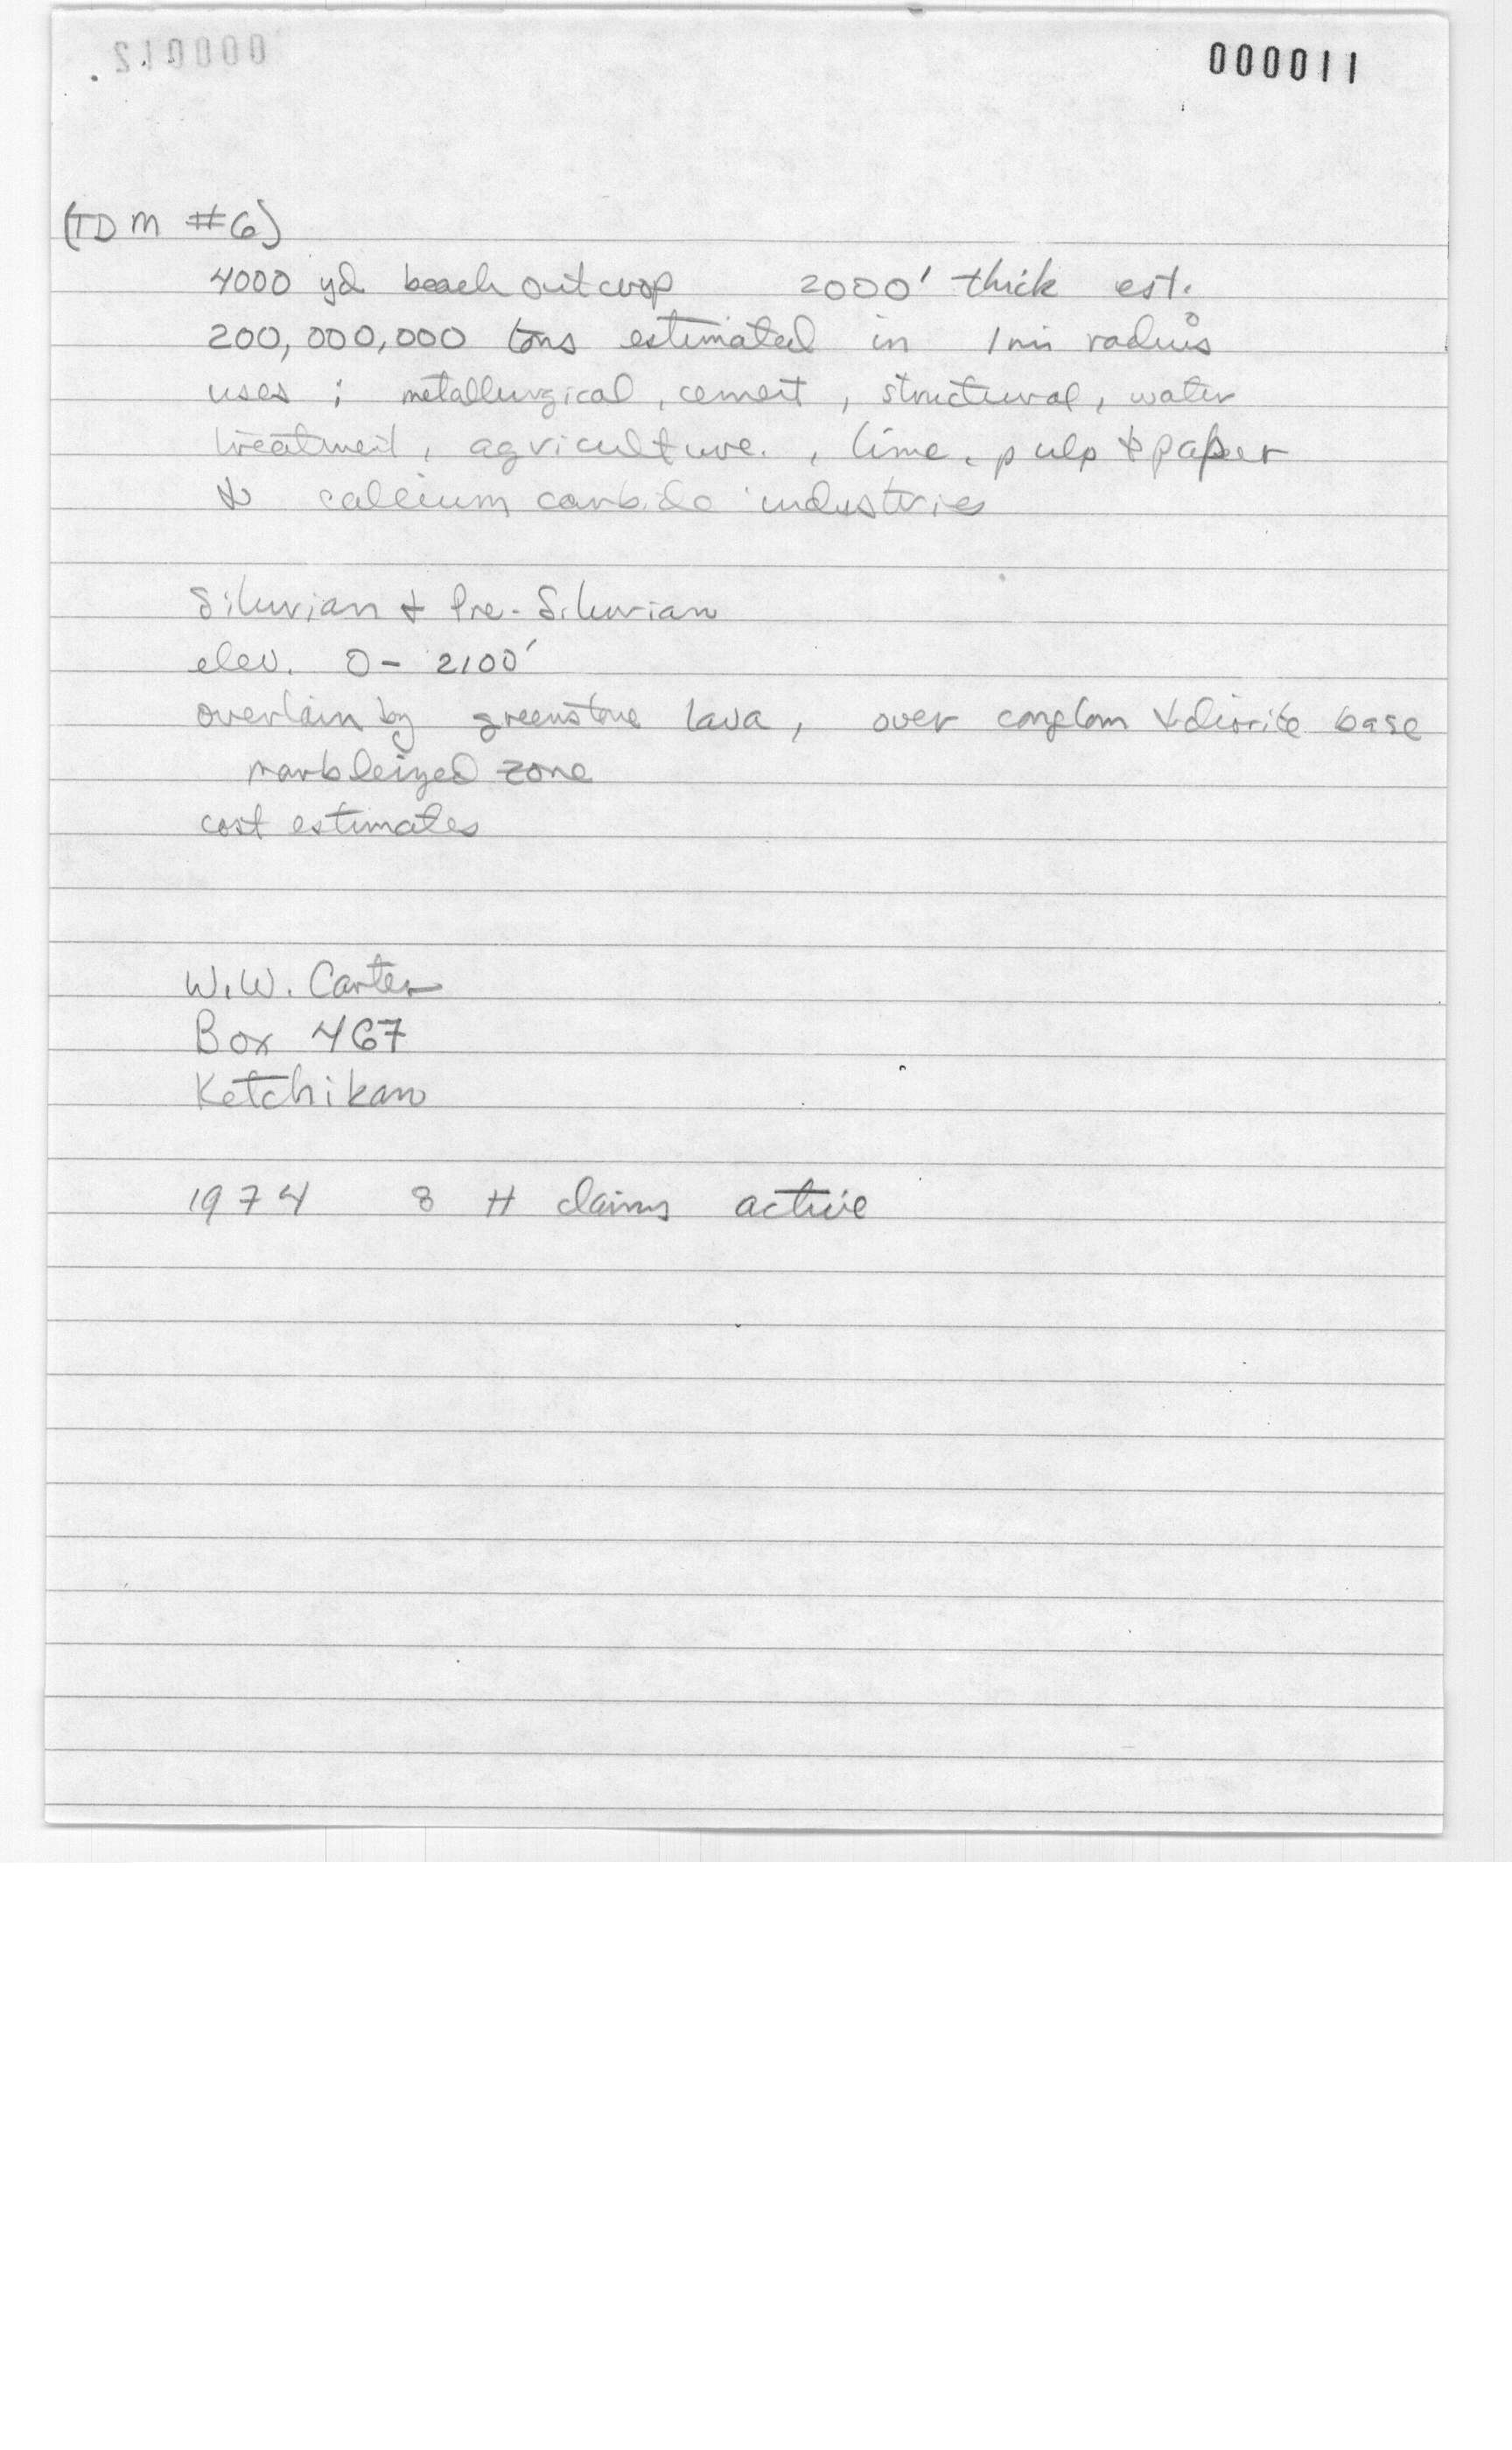 000011
(TDM #6)
4000 yd beach outcrop 2000' thick est.
200,000,000 tons estimated in 1 mi radius
uses ; metallurgical, cement, structural, water
treatment, agriculture. , lime, pulp & paper
& calcium carbide industries
Silurian & Pre-Silurian
elev. 0 - 2100'
overlain by greenstone lava, over conglom & diorite base
marbleized zone
cost estimates
W.W. Carter
Box 467
Ketchikan
1974 8 H claims active